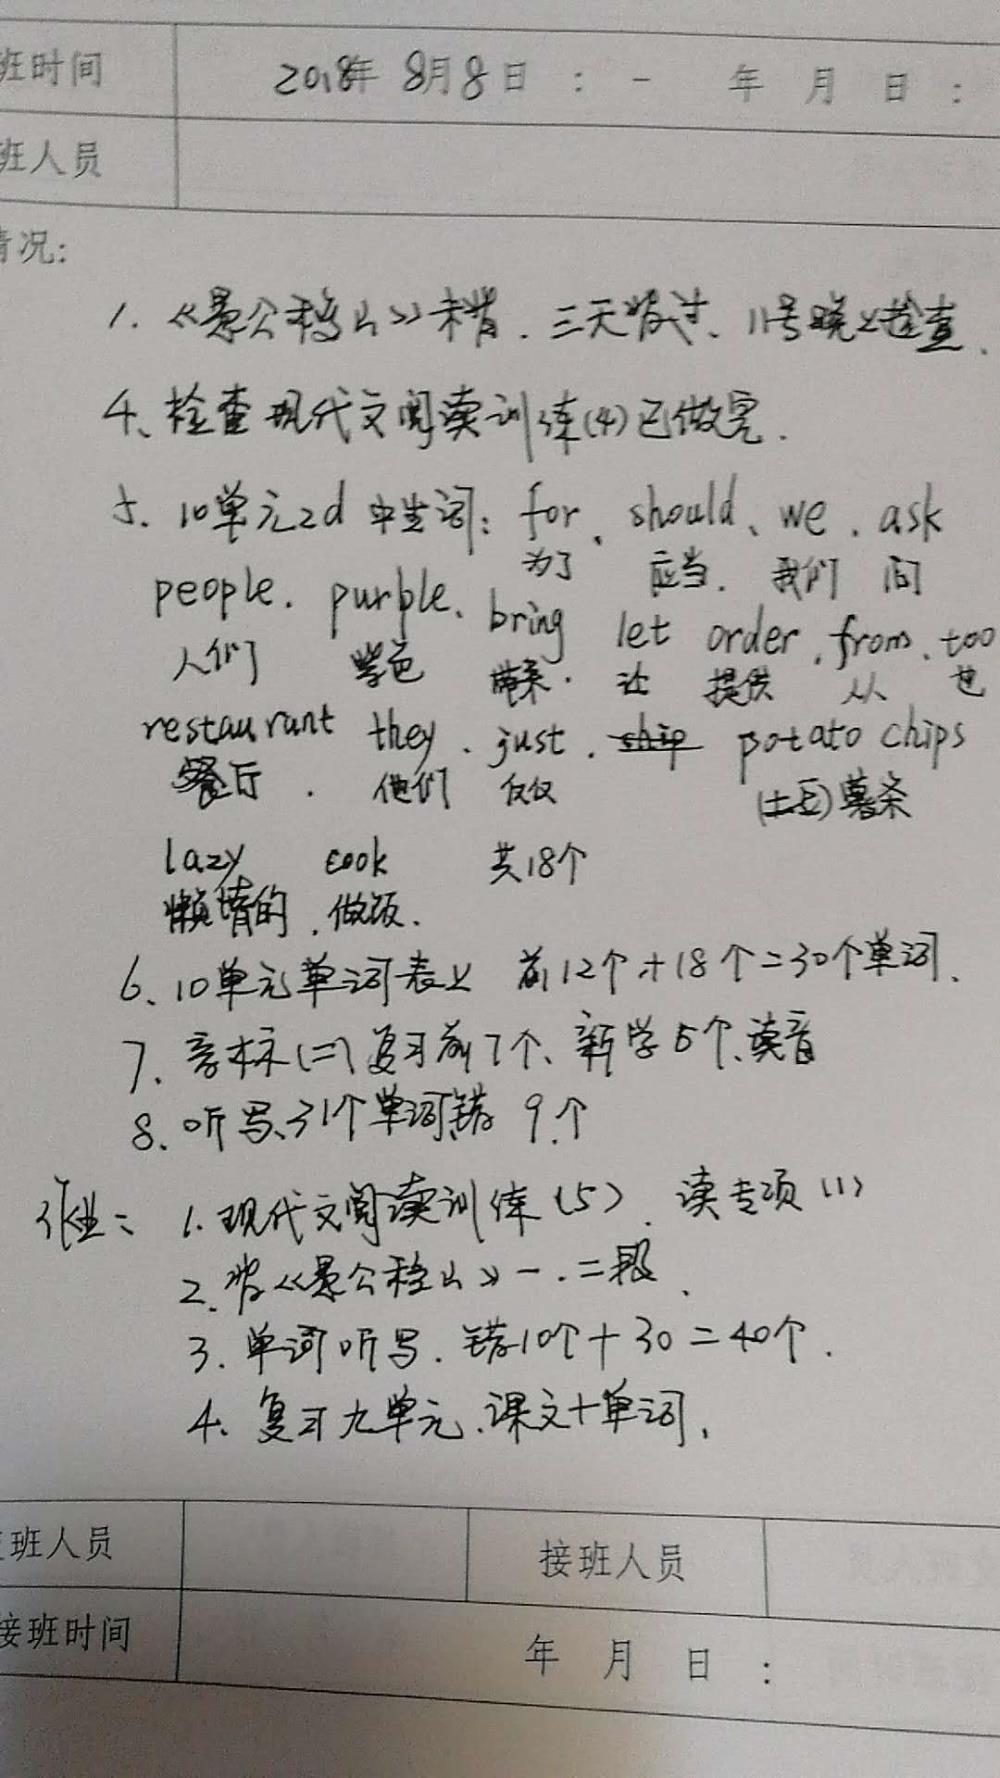 班时间 2018年 8月8日 : - 年 月 日 :
班人员
情况:
1. 《愚公移山》未背. 三天背过、11号晚上检查.
4、检查现代文阅读训练(4)已做完.
5. 10单元2d 中生词: for、should、we . ask
为了 应当. 我们 问
people. purble、bring let order . from . too
人们 紫色 带来. 让 提供 从 也
restaurant they . just . ship potato chips
餐厅 . 他们 仅仅 (土豆)薯条
lazy cook 共18个
懒惰的 . 做饭.
6、10单元单词表上 前12个+18个=30个单词、
7、音标(二)复习前7个、新学5个、读音
8、听写、31个单词错 9个
作业: 1.现代文阅读训练(5)、读专项(1)
2.背《愚公移山》一.二段.
3.单词听写. 错10个+30=40个.
4、复习九单元、课文+单词.
班人员 接班人员
接班时间 年 月 日 :